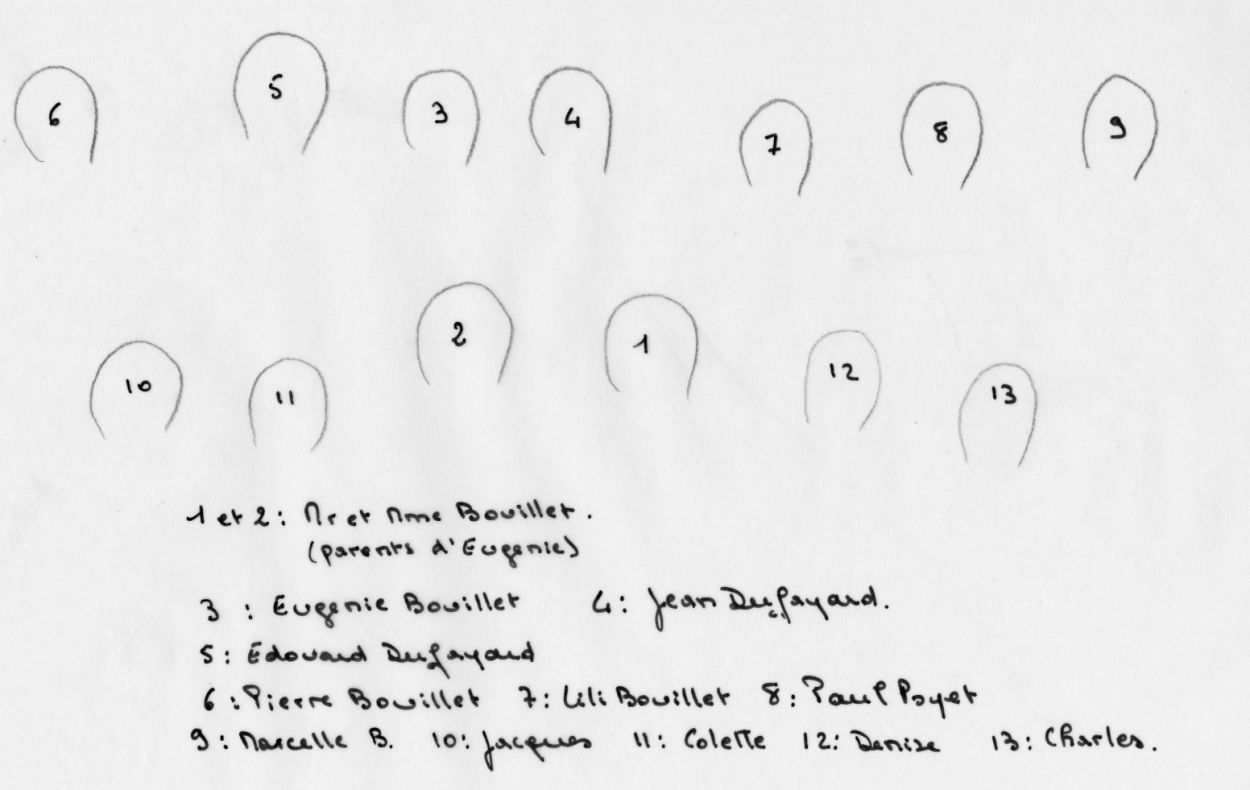 6 5 3 4 7 8 9
10 11 2 1 12 13
1 et 2 : Mr et Mme Bouillet.
(parents d'Eugenie)
3 : Eugenie Bouillet 4 : Jean Dufayard.
5 : Edouard Dufayard
6 : Pierre Bouillet 7 : Lili Bouillet 8 : Paul Poyet
9 : Marcelle B. 10 : Jacques 11 : Colette 12 : Denise 13 : Charles.